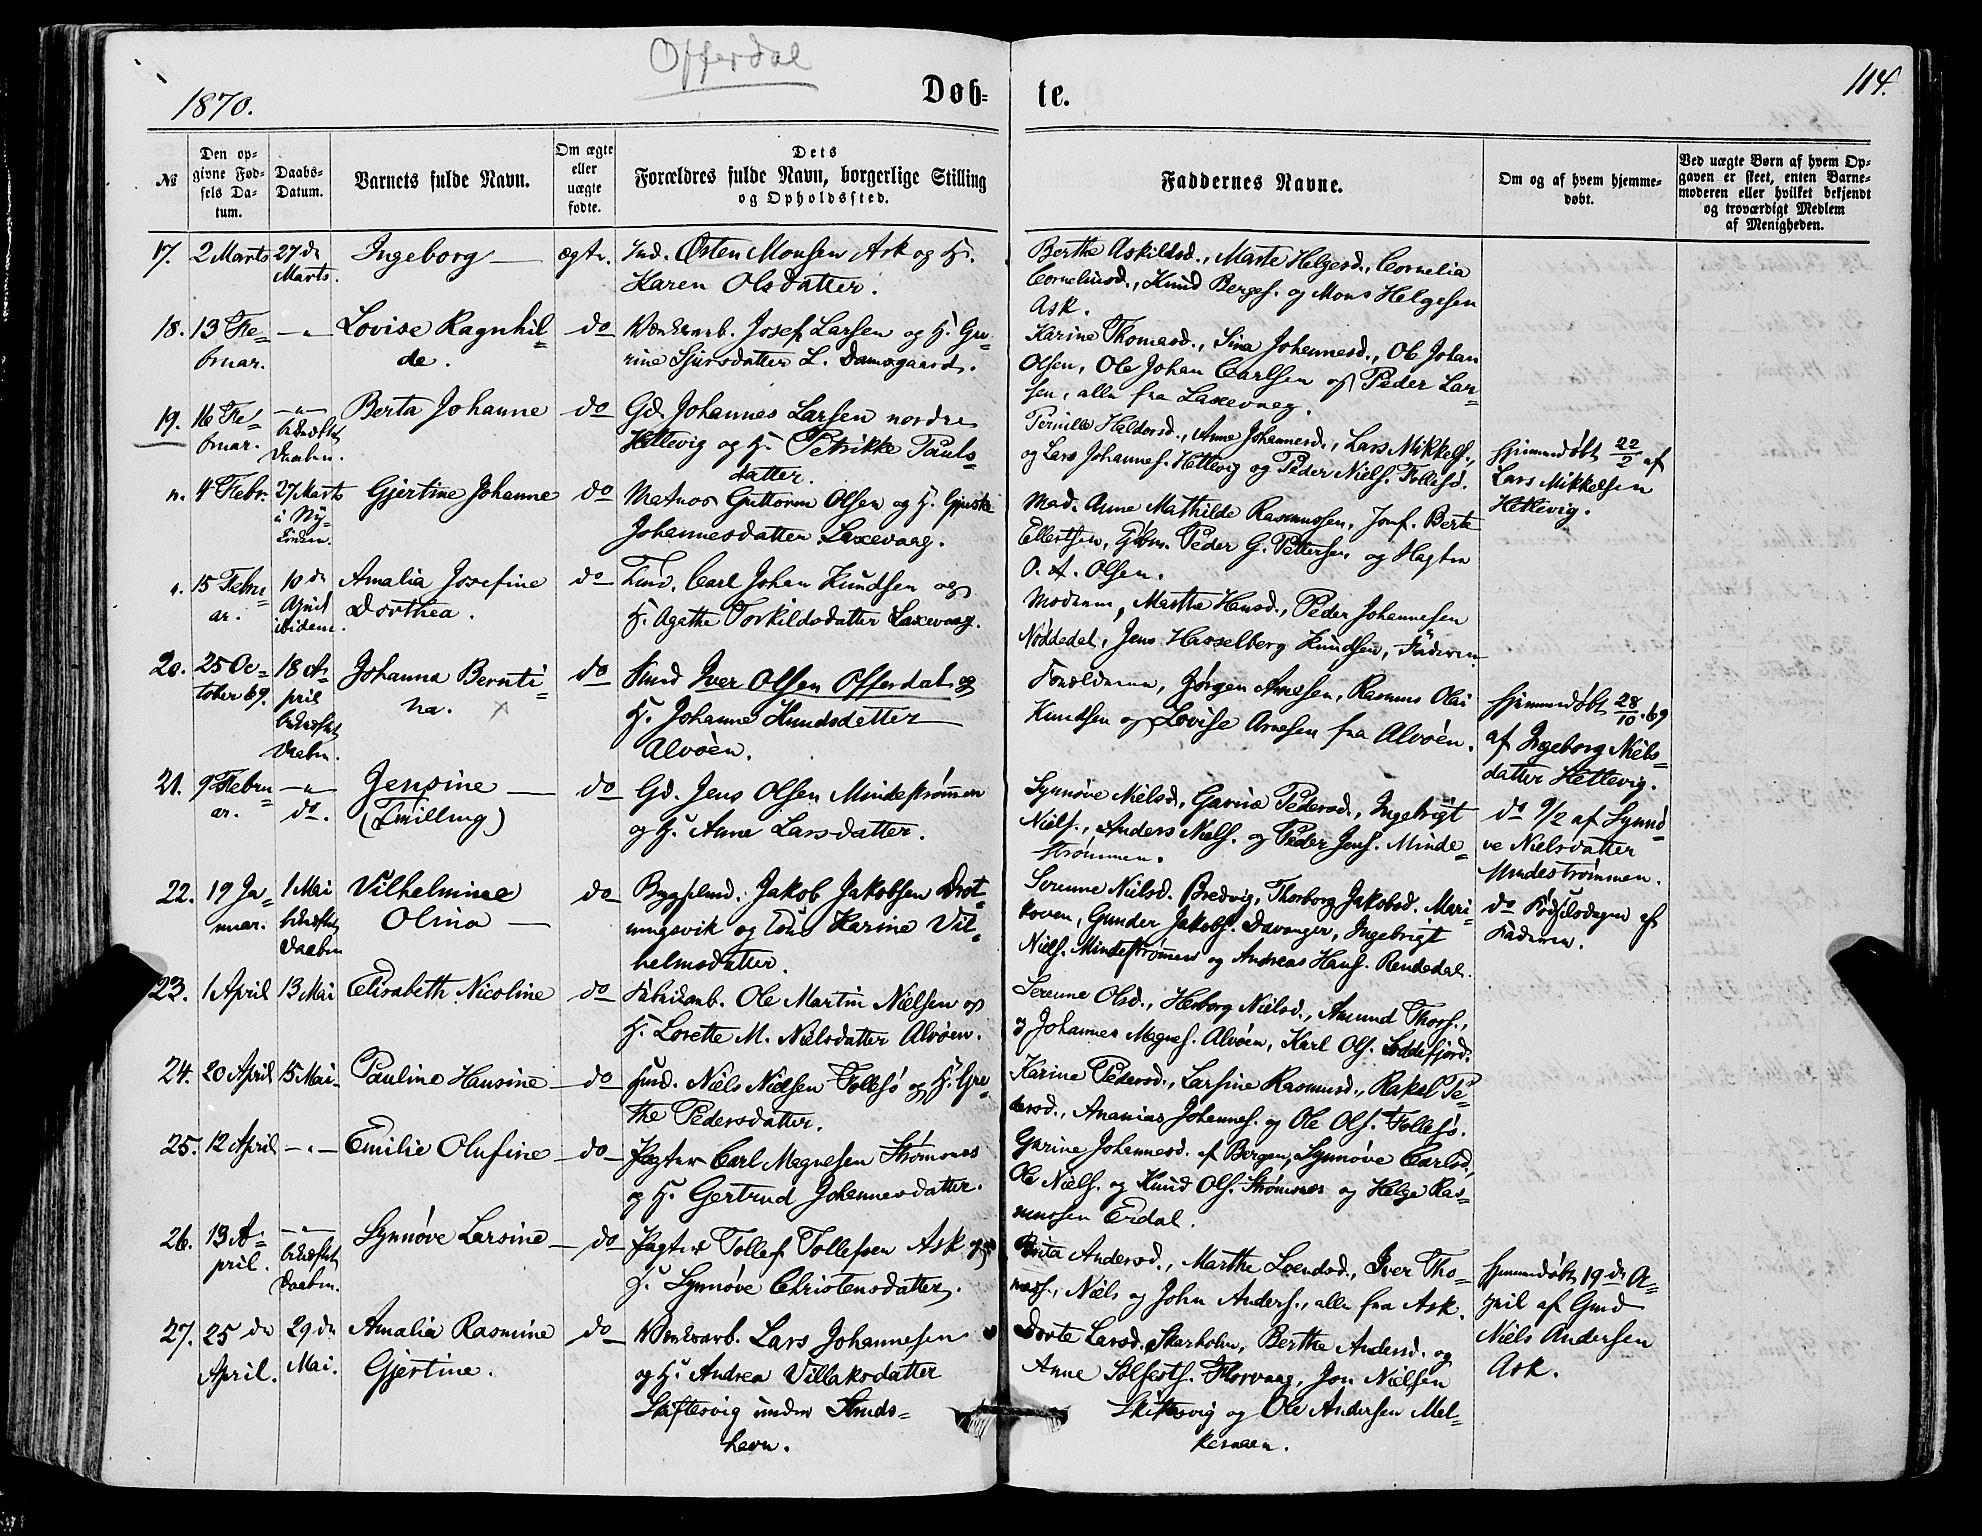 Offerdal
1870.
Døb-
te.
114.
№
Den op-
givne Fød-
sels Da-
tum.
Daabs-
Datum.
Barnets fulde Navn.
Om ægte
eller
uægte
fødte.
Dets
Forældres fulde Navn, borgerlige Stilling
og Opholdssted.
Faddernes Navne.
Om og af hvem hjemme-
døbt.
Ved uægte Børn af hvem Op-
gaven er skeet, enten Barne-
moderen eller hvilket bekjendt
og troværdigt Medlem
af Menigheden.
17. 2 Marts 27 de
Marts.
Ingeborg — ægte.
Ind. Østen Monsen Ask og H.
Karen Olsdatter.
Berthe Askildsd., Marte Helgesd., Cornelia
Corneliusd., Knud Berges. og Mons Helgesen
Ask.
18. 13 Fe-
bruar.
—"—
Lovise Ragnhil-
de.
do
Værksarb. Josef Larsen og H. Gu-
rine Sjursdatter L. Damsgaard.
Karine Thomasd., Sina Johannesd., Ole Johan
Olsen, Ole Johan Carlsen og Peder Lar-
sen, alle fra Laxevaag.
19. 16 Fe-
bruar.
—"—
bekræftet
Daaben.
Berta Johanne do
Gd. Johannes Larsen nordre
Hettevig og H. Petrikke Pauls-
datter.
Pernille Haldorsd., Anne Johannesd., Lars Mikkels.,
og Lars Johannes. Hettevig og Peder Niels. Follesø.
Hjemmedøbt 22/2 af
Lars Mikkelsen
Hettevig.
n. 4 Febr. 27 Marts
i Ny-
kirken.
Gjertine Johanne do
Matros Guttorm Olsen og H.
Johannesdatter Laxevaag.
Mad. Anne Mathilde Rasmussen, Jonf. Berte
Ellertsen, Peder G. Pettersen og
O. A. Olsen.
n. 15 Febru-
ar.
10 de
April
ibidem.
Amalia Josefine
Dorthea.
do
Carl Johan Knudsen og
H. Agathe Torkildsdatter Laxevaag.
Moderen, Martha Hansd., Peder Johannesen
Nøddedal, Jens Hasselberg Knudsen, Faderen.
20. 25 Oc-
tober 69.
18 A-
pril
bekræftet
Daaben.
Johanna Bernti-
na. x
do
Smed Iver Olsen Offerdal og
H. Johanne Knudsdatter
Alvøen.
Forældrene, Jørgen Arnesen, Rasmus Olai
Knudsen og Lovise Arnesen fra Alvøen.
Hjemmedøbt 28/10. 69
af Ingeborg Niels-
datter Hettevig.
21. 9 Febru-
ar.
—"—
do.
Jensine —
(Tvilling)
do
Gd. Jens Olsen Mindestrømmen
og H. Anne Larsdatter.
Synnøve Nielsd., Gurine Pedersd., Ingebrigt
Niels., Anders Niels. og Peder Jens. Minde-
strømmen.
do 9/2 af Synnø-
ve Nielsdatter
Mindestrømmen.
22. 19 Ja-
nuar.
1 Mai
bekræftet
Daaben
Vilhelmine
Olina —
do
Bygselmd. Jakob Jakobsen Drot-
ningsvik og Karine Vil-
helmsdatter.
Serenne Nielsd. Bredvig, Thorborg Jakobsd. Mari-
koven, Gunder Jakobs. Davanger, Ingebrigt
Niels. Mindestrømmen og Andreas Hans. Rendedal.
do Fødselsdagen af
Faderen.
23. 1 April 13 Mai
Elisabeth Nicoline do
Fabrikarb. Ole Martin Nielsen og
H. Lorette M. Nielsdatter Alvøen.
Serenne Olsd., Herborg Nielsd., Amund Thors.,
og Johannes Magnes. Alvøen, Karl Ols. Loddefjord.
24. 20 April 15 Mai
Pauline Hansine — do
Hmd. Niels Nielsen Follesø og H. Gre-
the Pedersdatter.
Karine Pedersd., Larsine Rasmusd., Rakel Pe-
dersd., Ananias Johannes. og Ole Ols. Follesø.
25. 12 April —"—
Emilie Olufine — do
Jægter Carl Magnesen Strømsnes
og H. Gertrud Johannesdatter.
Gurine Johannesd. af Bergen, Synnøve Carlsd,
Ole Niels. og Knud Ols. Strømsnes og Helge Ras-
mussen Erdal.
26. 13 A-
pril.
—"—
bekræftet
Daaben.
Synnøve Larsine — do
Jægter Tollef Tollefsen Ask og
H. Synnøve Christensdatter.
Brita Andersd., Marthe Loendsd., Iver Tho-
mass., Niels og John Anders., alle fra Ask.
Hjemmedøbt 19 de A-
pril af Gmd
Niels Andersen
Ask.
27. 25 de
April.
29 de
Mai.
Amalia Rasmine
Gjertine.
do
Værksarb. Lars Johannesen
og H. Andrea Villaksdatter
Skiftesvig under Struds-
havn.
Dorte Larsd. Skarholm, Berthe Andersd. og
Anne Solfests. Florvaag, Jon Nielsen
Skiftesvig og Ole Andersen Mel-
keraaen.